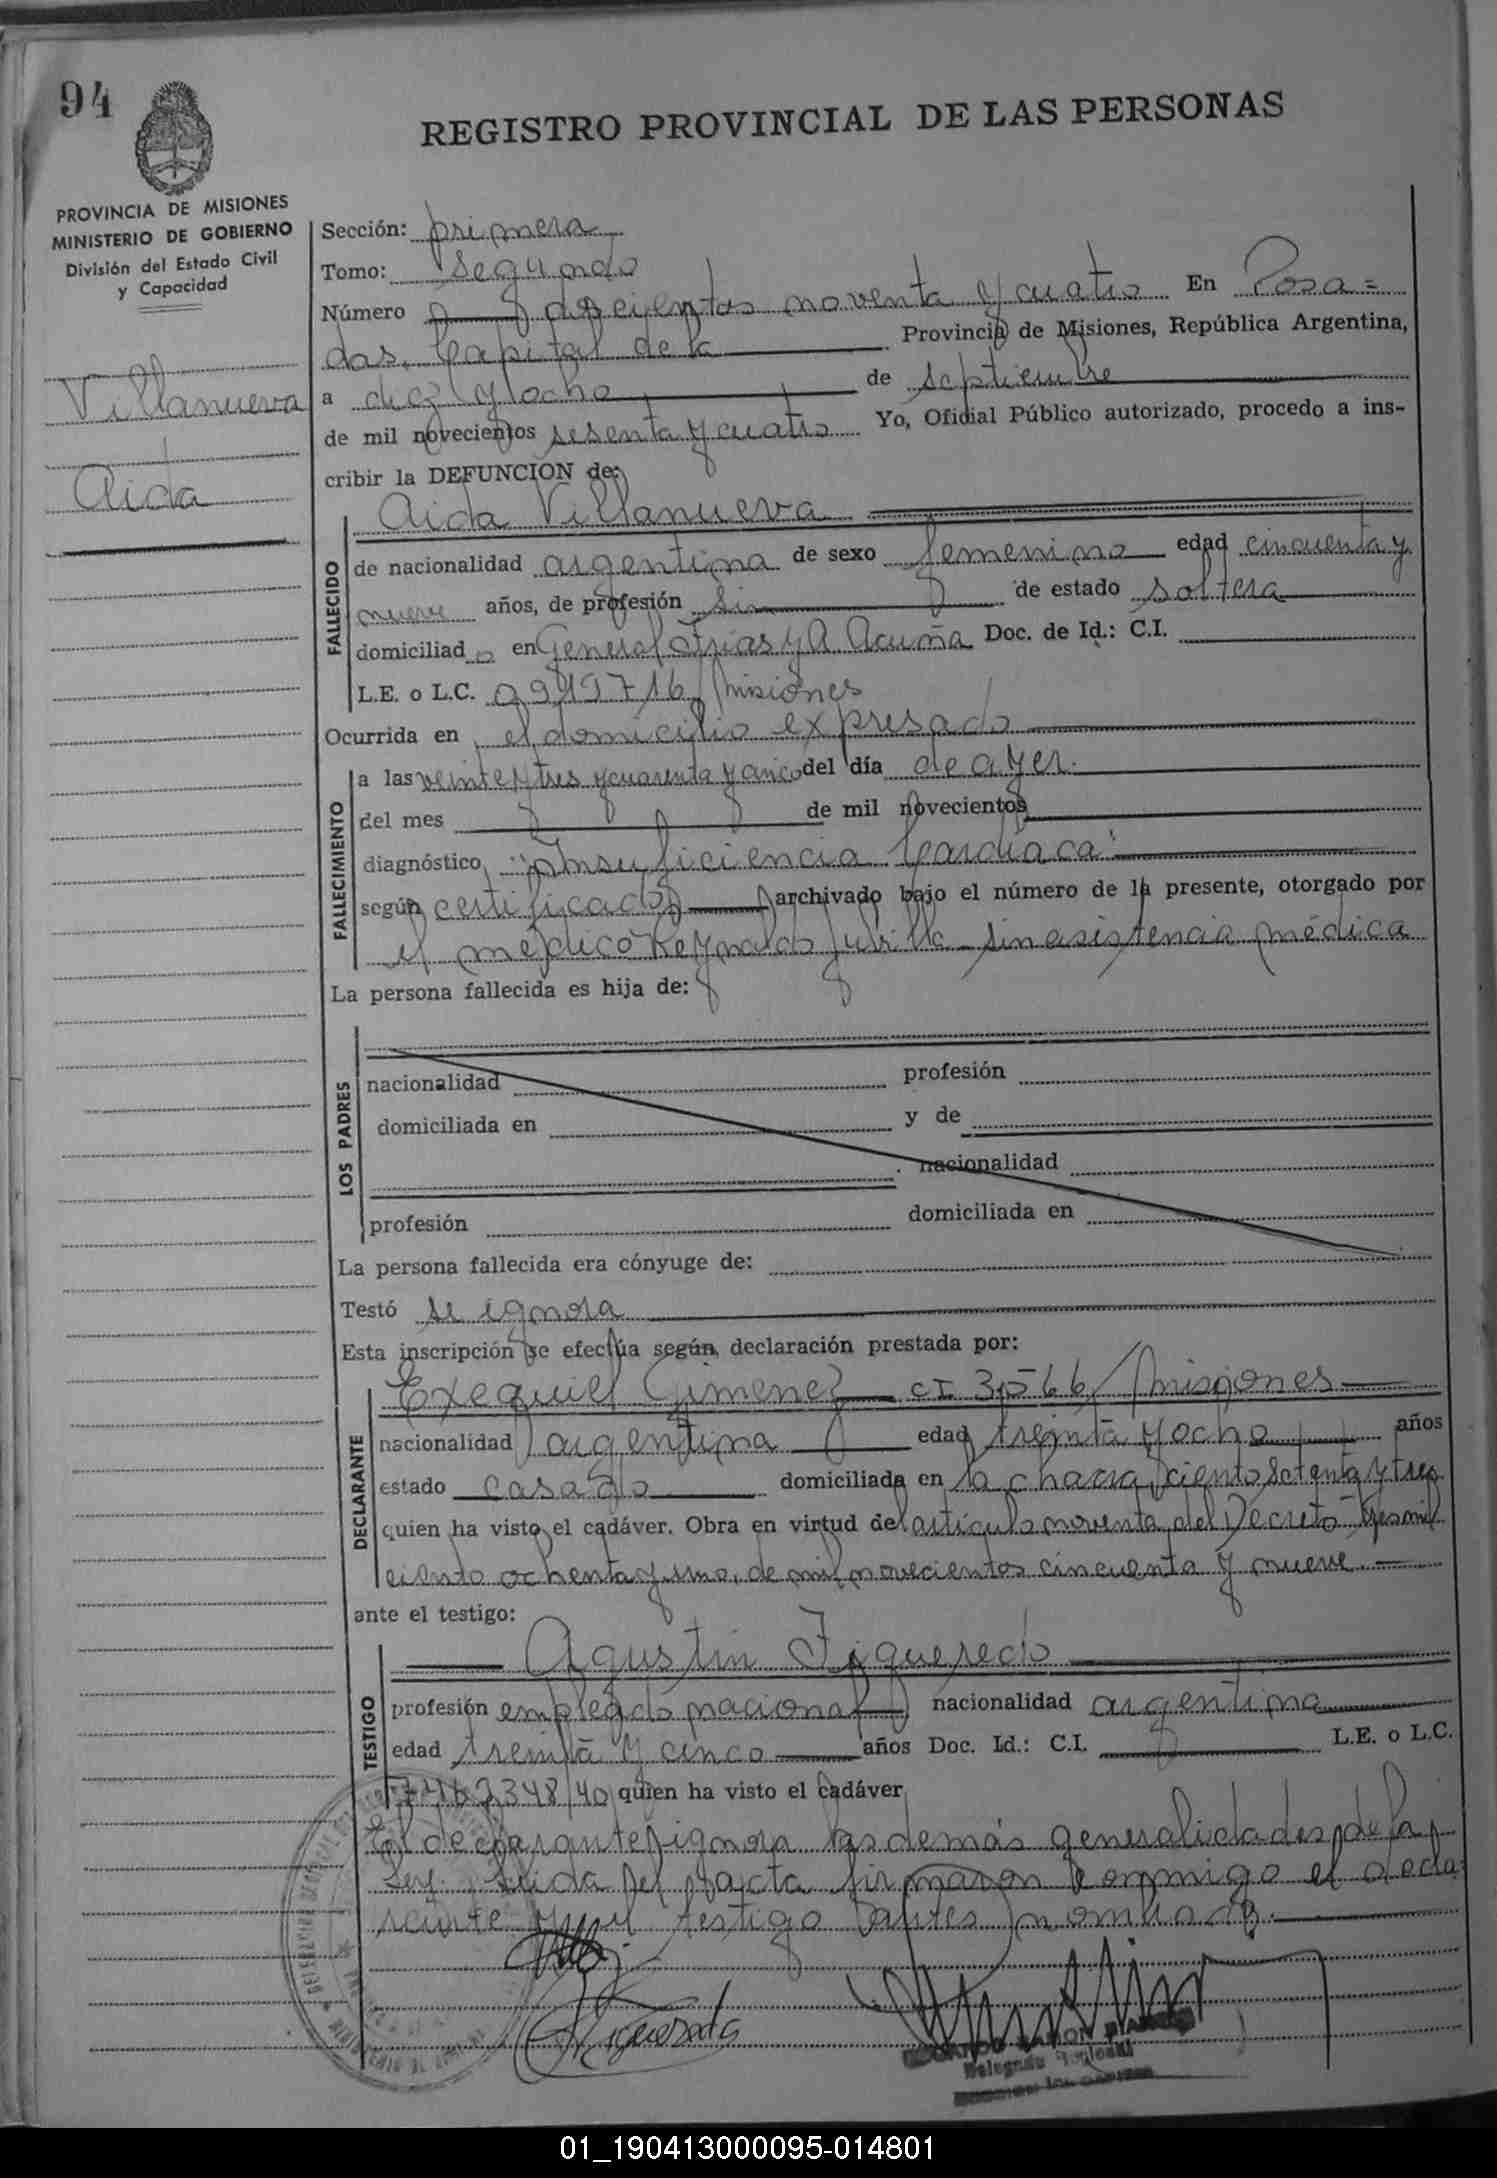 94
REGISTRO PROVINCIAL DE LAS PERSONAS
PROVINCIA DE MISIONES
MINISTERIO DE GOBIERNO
División del Estado Civil
y Capacidad
Villanueva
Aida
Sección: primera
Tomo: segundo
Número doscientos noventa y cuatro En Posa=
das, Capital de la Provincia de Misiones, República Argentina,
a diez y ocho de septiembre
de mil novecientos sesenta y cuatro Yo, Oficial Público autorizado, procedo a ins-
cribir la DEFUNCION de:
Aida Villanueva
FALLECIDO
de nacionalidad argentina de sexo femenino edad cincuenta y
nueve años, de profesión sin de estado soltera
domiciliad o en General Frias y A Acuña Doc. de Id.: C.I.
L.E. o L.C. Misiones
Ocurrida en el domicilio expresado
FALLECIMIENTO
a las veinte y tres y cuarenta y cinco del día de ayer.
del mes de mil novecientos
diagnóstico "Insuficiencia Cardíaca"
según certificado archivado bajo el número de la presente, otorgado por
el médico Reynaldo sin asistencia médica
La persona fallecida es hija de:
LOS PADRES
nacionalidad profesión
domiciliada en y de
nacionalidad
profesión domiciliada en
La persona fallecida era cónyuge de:
Testó se ignora
Esta inscripción se efectúa según declaración prestada por:
DECLARANTE
Exequiel Gimenez CI 3,566/Misiones
nacionalidad argentina edad treinta y ocho años
estado casado domiciliada en la chacra ciento setenta y tres
quien ha visto el cadáver. Obra en virtud del artículo noventa del Decreto tres mil
ciento ochenta y uno, de mil novecientos cincuenta y nueve.
ante el testigo:
TESTIGO
Agustin Figueredo
profesión empleado nacional nacionalidad argentina
edad treinta y cinco años Doc. Id.: C.I. L.E. o L.C.
7462348/40 quien ha visto el cadáver
El declarante ignora las demás generalidades de la
Ley. Leida el acta firmaron conmigo el decla=
rante y el testigo antes nombrado.
01_190413000095-014801